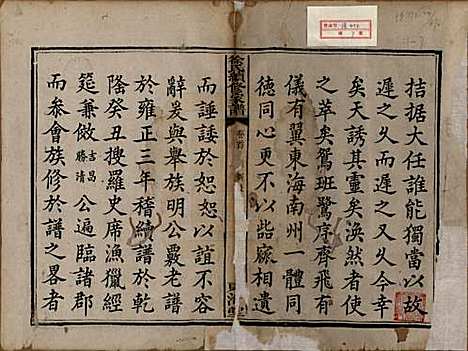 拮据大任誰能獨當以故
遲之又久而遲之又久今幸
矣天誘其靈矣渙然者
之萃矣鴛班鷺序齊飛有
儀有翼東海南州一體同
德同心更不以些嫁相遺
卷首
而諈諉於恕恕以誼不容
辭爰與舉族明公覈老譜
於雍正三年稽續譜於乾
隆癸丑搜羅史席漁獵經
筵兼倣吉昌勝清公遍臨諸郡
而參會族修於譜之畧者